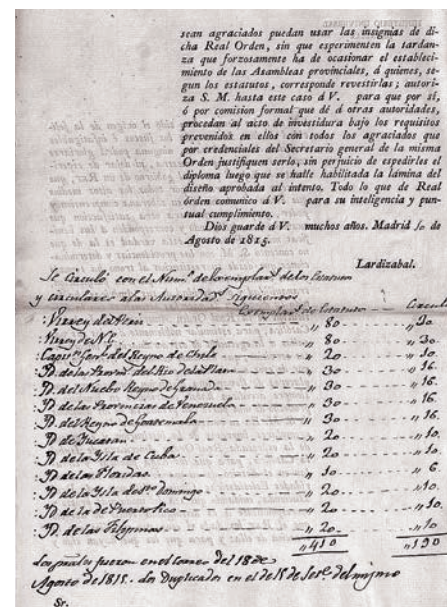 sean agraciados puedan usar las insignias de di-
cha Real Orden, sin que esperimenten la tardan-
za que forzosamente ha de ocasionar el estableci-
miento de las Asambleas provinciales, á quienes, se-
gun los estatutos, corresponde revestirlas; autori-
za S. M. hasta este caso á V. para que por sí,
ó por comision formal que dé á otras autoridades,
procedan al acto de investidura bajo los requisitos
prevenidos en ellos con todos los agraciados que
por credenciales del Secretario general de la misma
Orden justifiquen serlo, sin perjuicio de espedirles el
diploma luego que se halle habilitada la lámina del
diseño aprobada al intento. Todo lo que de Real
órden comunico á V. para su inteligencia y pun-
tual cumplimiento.
Dios guarde á V. muchos años. Madrid 10 de
Agosto de 1815.
Lardizabal.
Se Circuló con el Num.º de exemplar.s de los Estatutos
y circulares á las Autoridad.s siguientes
Exemplar.s de Estatutos Circul
Virrey del Perú „ 80 „ 30
Virrey de N.E. „ 80 „ 30
Capit.n Gen.l del Reyno de Chile „ 20 „ 10
YD. de las Provin.s del Rio de la Plata „ 30 „ 16
YD. del Nuebo Reyno de Granada „ 30 „ 16
YD. de las Provincias de Venezuela „ 30 „ 16
YD. del Reyno de Goatemala „ 30 „ 16
YD. de Yucatan „ 20 „ 10
YD. de la Ysla de Cuba „ 20 „ 10
YD. de las Floridas „ 10 „ 6
YD. de la Ysla de Sto Domingo „ 20 „ 10
YD. de la de Puerto Rico „ 20 „ 10
YD. de las Filipinas „ 20 „ 10
„ 410 „ 190
Los pral.s fueron en el Correo del 18 de
Agosto de 1815. Los Duplicados en el de 15 de Set.e del mismo
Sr.